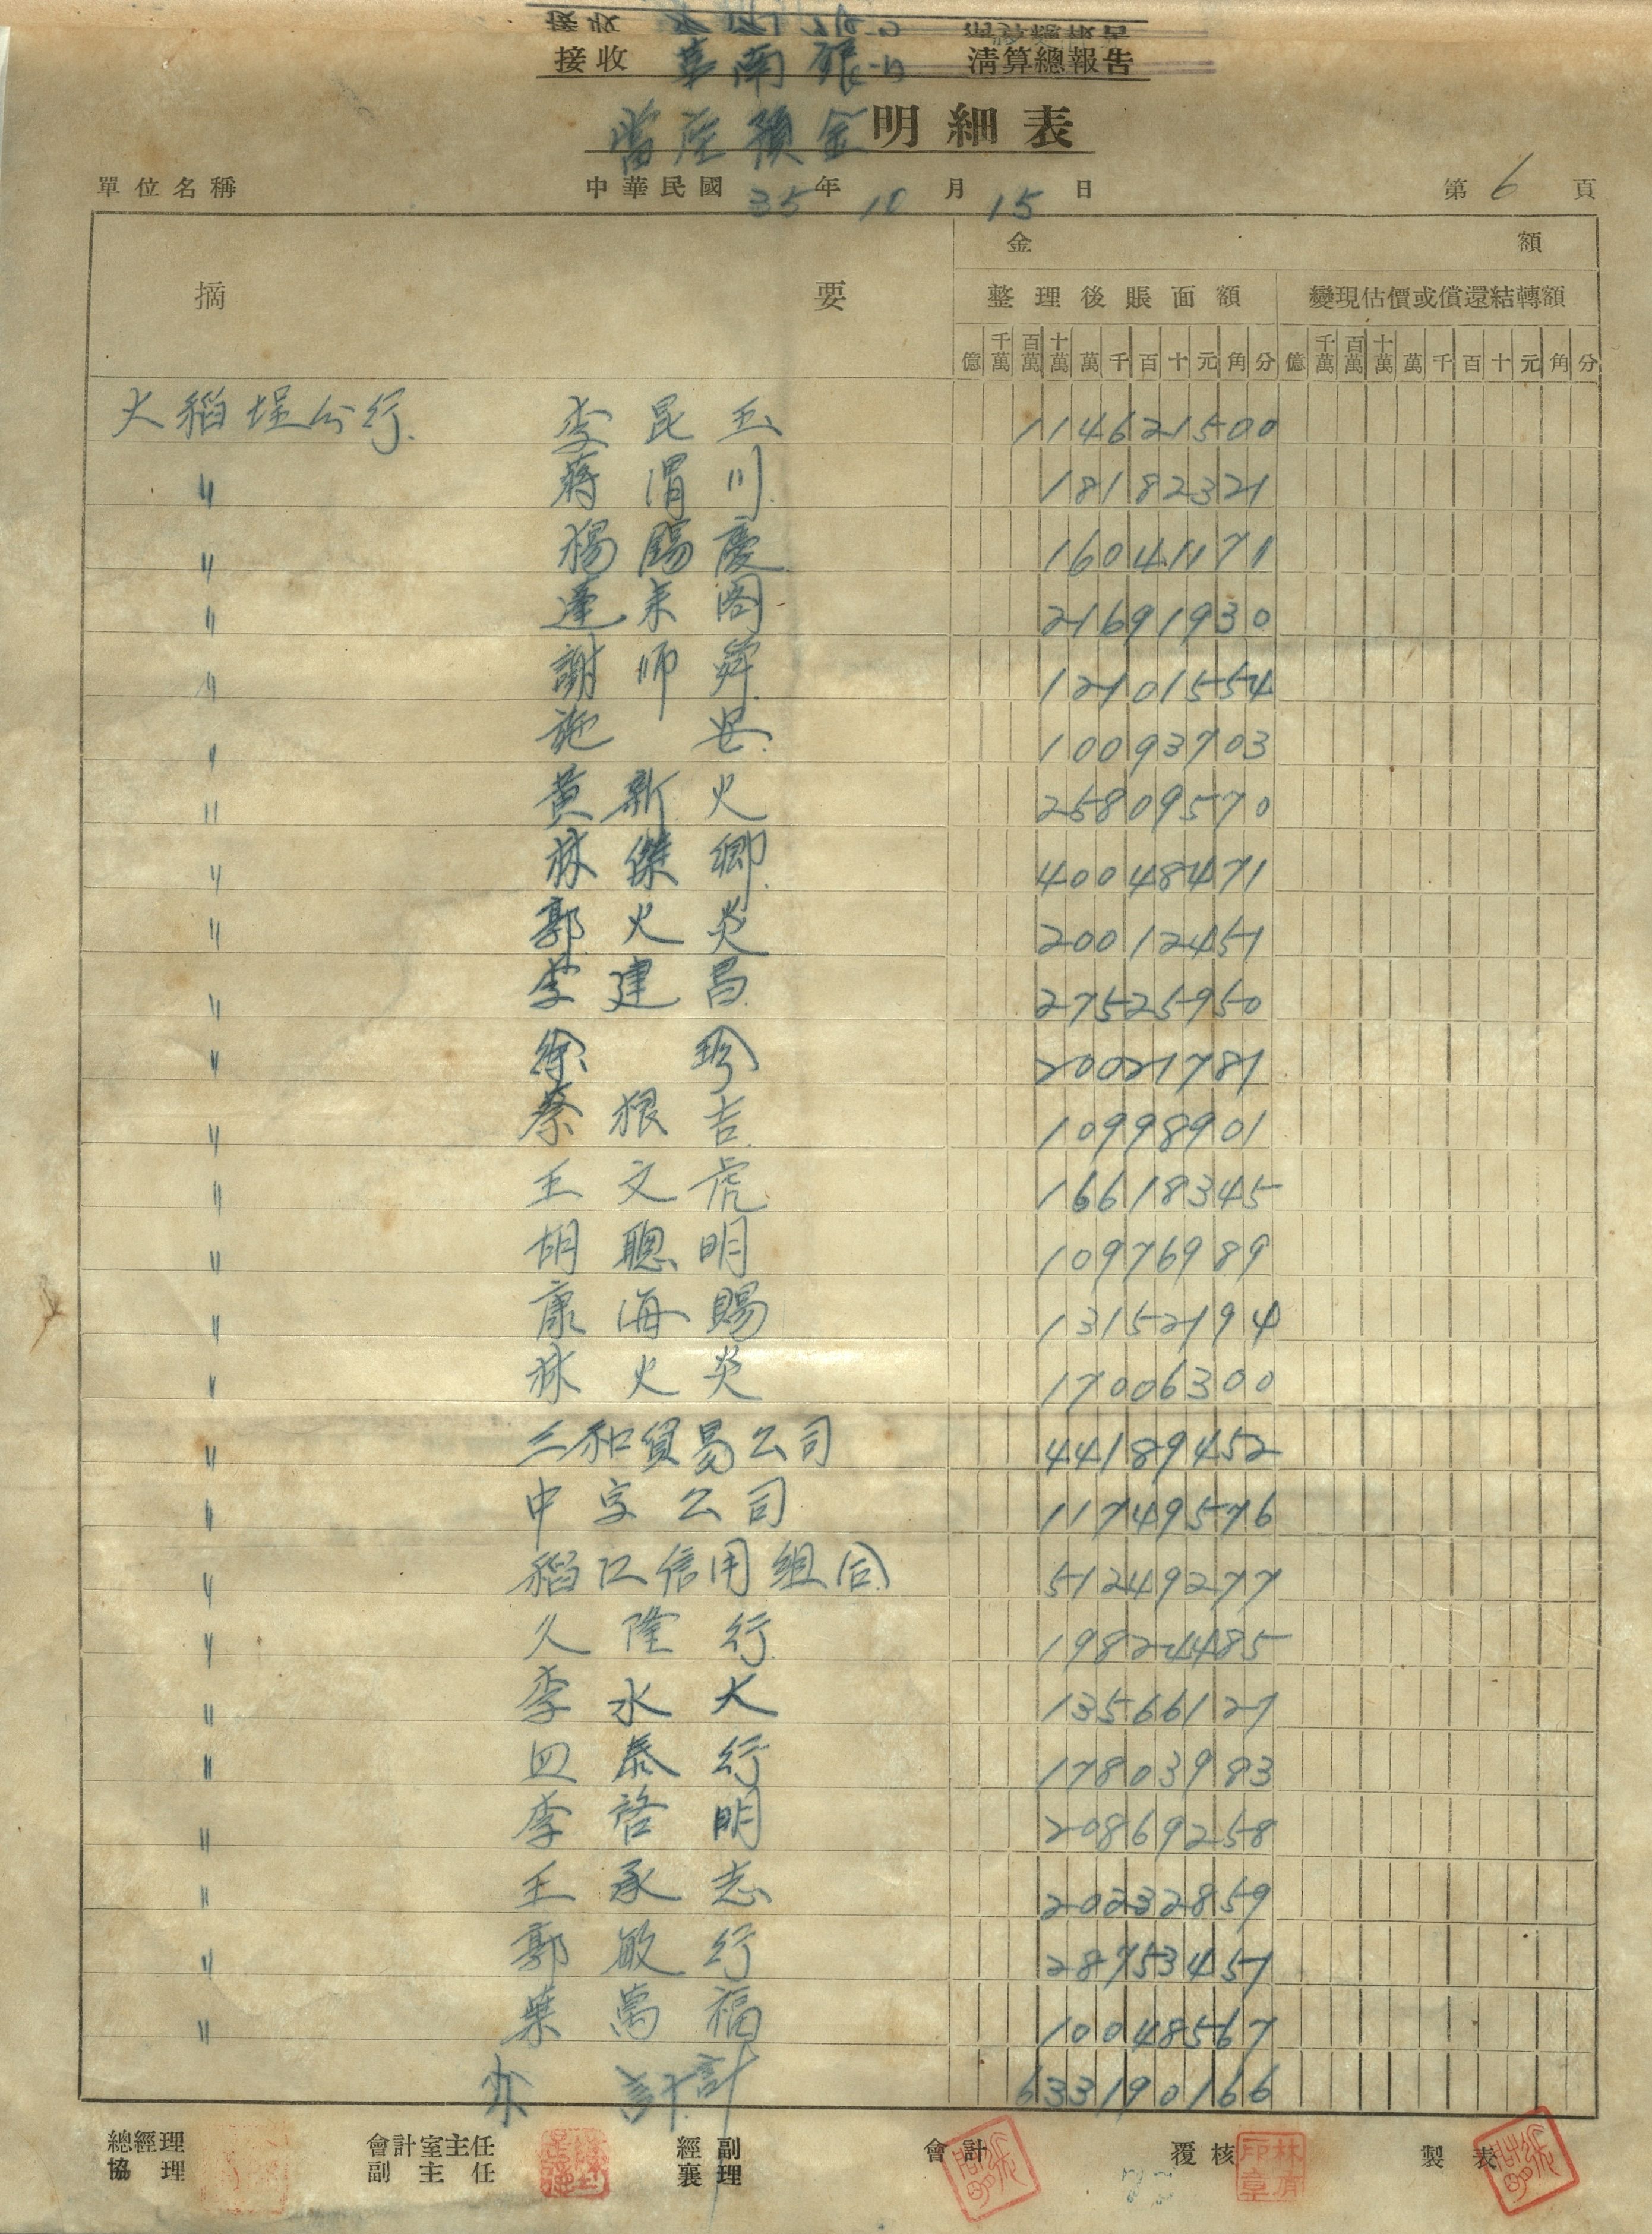 接收 華南銀行 清算總報告
當座預金明細表
單位名稱 中華民國 35年 10月 15日 第 6 頁
摘要 金額
整理後賬面額 變現估價或償還結轉額
億 千萬 百萬 十萬 萬 千 百 十 元 角 分 億 千萬 百萬 十萬 萬 千 百 十 元 角 分
大稻埕分行. 李昆玉 114621500
〃 蔣渭川 18182321
〃 楊賜慶 16041171
〃 蓬萊閣 21691930
〃 謝師舜 12101554
〃 施安 10093703
〃 黃新火 25809570
〃 林傑卿 40048471
〃 郭火炎 20012451
〃 李建昌 27525950
〃 徐珍 20021781
〃 蔡粮吉 10998901
〃 王文虎 16618345
〃 胡聰明 10976989
〃 康海賜 13152194
〃 林火炎 17006300
〃 三和貿易公司 44189452
〃 中字公司 11749576
〃 稻江信用組合 51249277
〃 久隆行 19824485
〃 李水大 13566127
〃 四泰行 17803983
〃 李啓明 20869258
〃 王承志 20232859
〃 郭敏行 28753451
〃 葉萬福 10048567
小計 633190166
總經理 會計室主任 經副 會計 覆核 製表
協理 副主任 襄理
林 印章